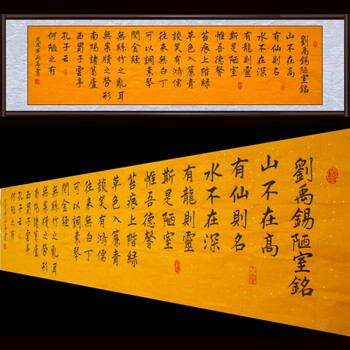 劉禹錫陋室銘
山不在高
有仙則名
水不在深
有龍則靈
斯是陋室
惟吾德馨
苔痕上階綠
草色入簾青
談笑有鴻儒
往來無白丁
可以調素琴
閱金經
無絲竹之亂耳
無案牘之勞形
南陽諸葛廬
西蜀子雲亭
孔子云
何陋之有
劉禹錫陋室銘
山不在高
有仙則名
水不在深
有龍則靈
斯是陋室
惟吾德馨
苔痕上階綠
草色入簾青
談笑有鴻儒
往來無白丁
可以調素琴
閱金經
無絲竹之亂耳
無案牘之勞形
南陽諸葛廬
西蜀子雲亭
孔子云
何陋之有